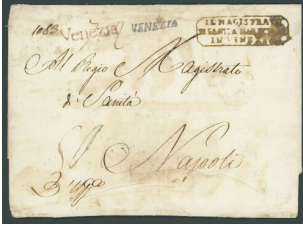 1083 Venezia VENEZIA
IL MAGISTRATO
IN VENEZIA
Al Regio Magistrato
di Sanità
Napoli